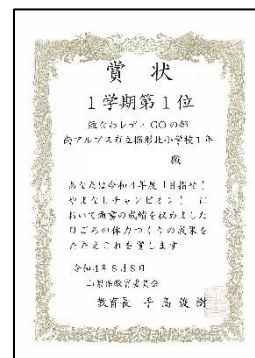 賞状
1学期第1位
縄なわレディGOの部
南アルプス市立櫛形北小学校1年
殿
あなたは令和4年度「目指せ!
やまなしチャンピオン!」に
おいて頭書の成績を収めました
日ごろの体力つくりの成果を
たたえこれを賞します
令和4年8月8日
山梨県教育委員会
教育長 手島俊樹